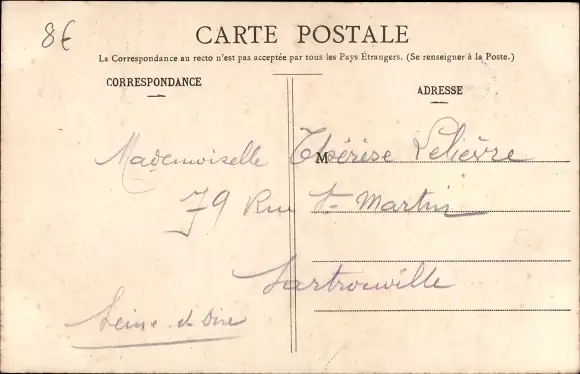 8€
CARTE POSTALE
La Correspondance au recto n'est pas acceptée par tous les Pays Étrangers. (Se renseigner à la Poste.)
CORRESPONDANCE
ADRESSE
M
Mademoiselle Thérèse Lelièvre
79 Rue St- Martin
Sartrouville
Seine-et-Oise